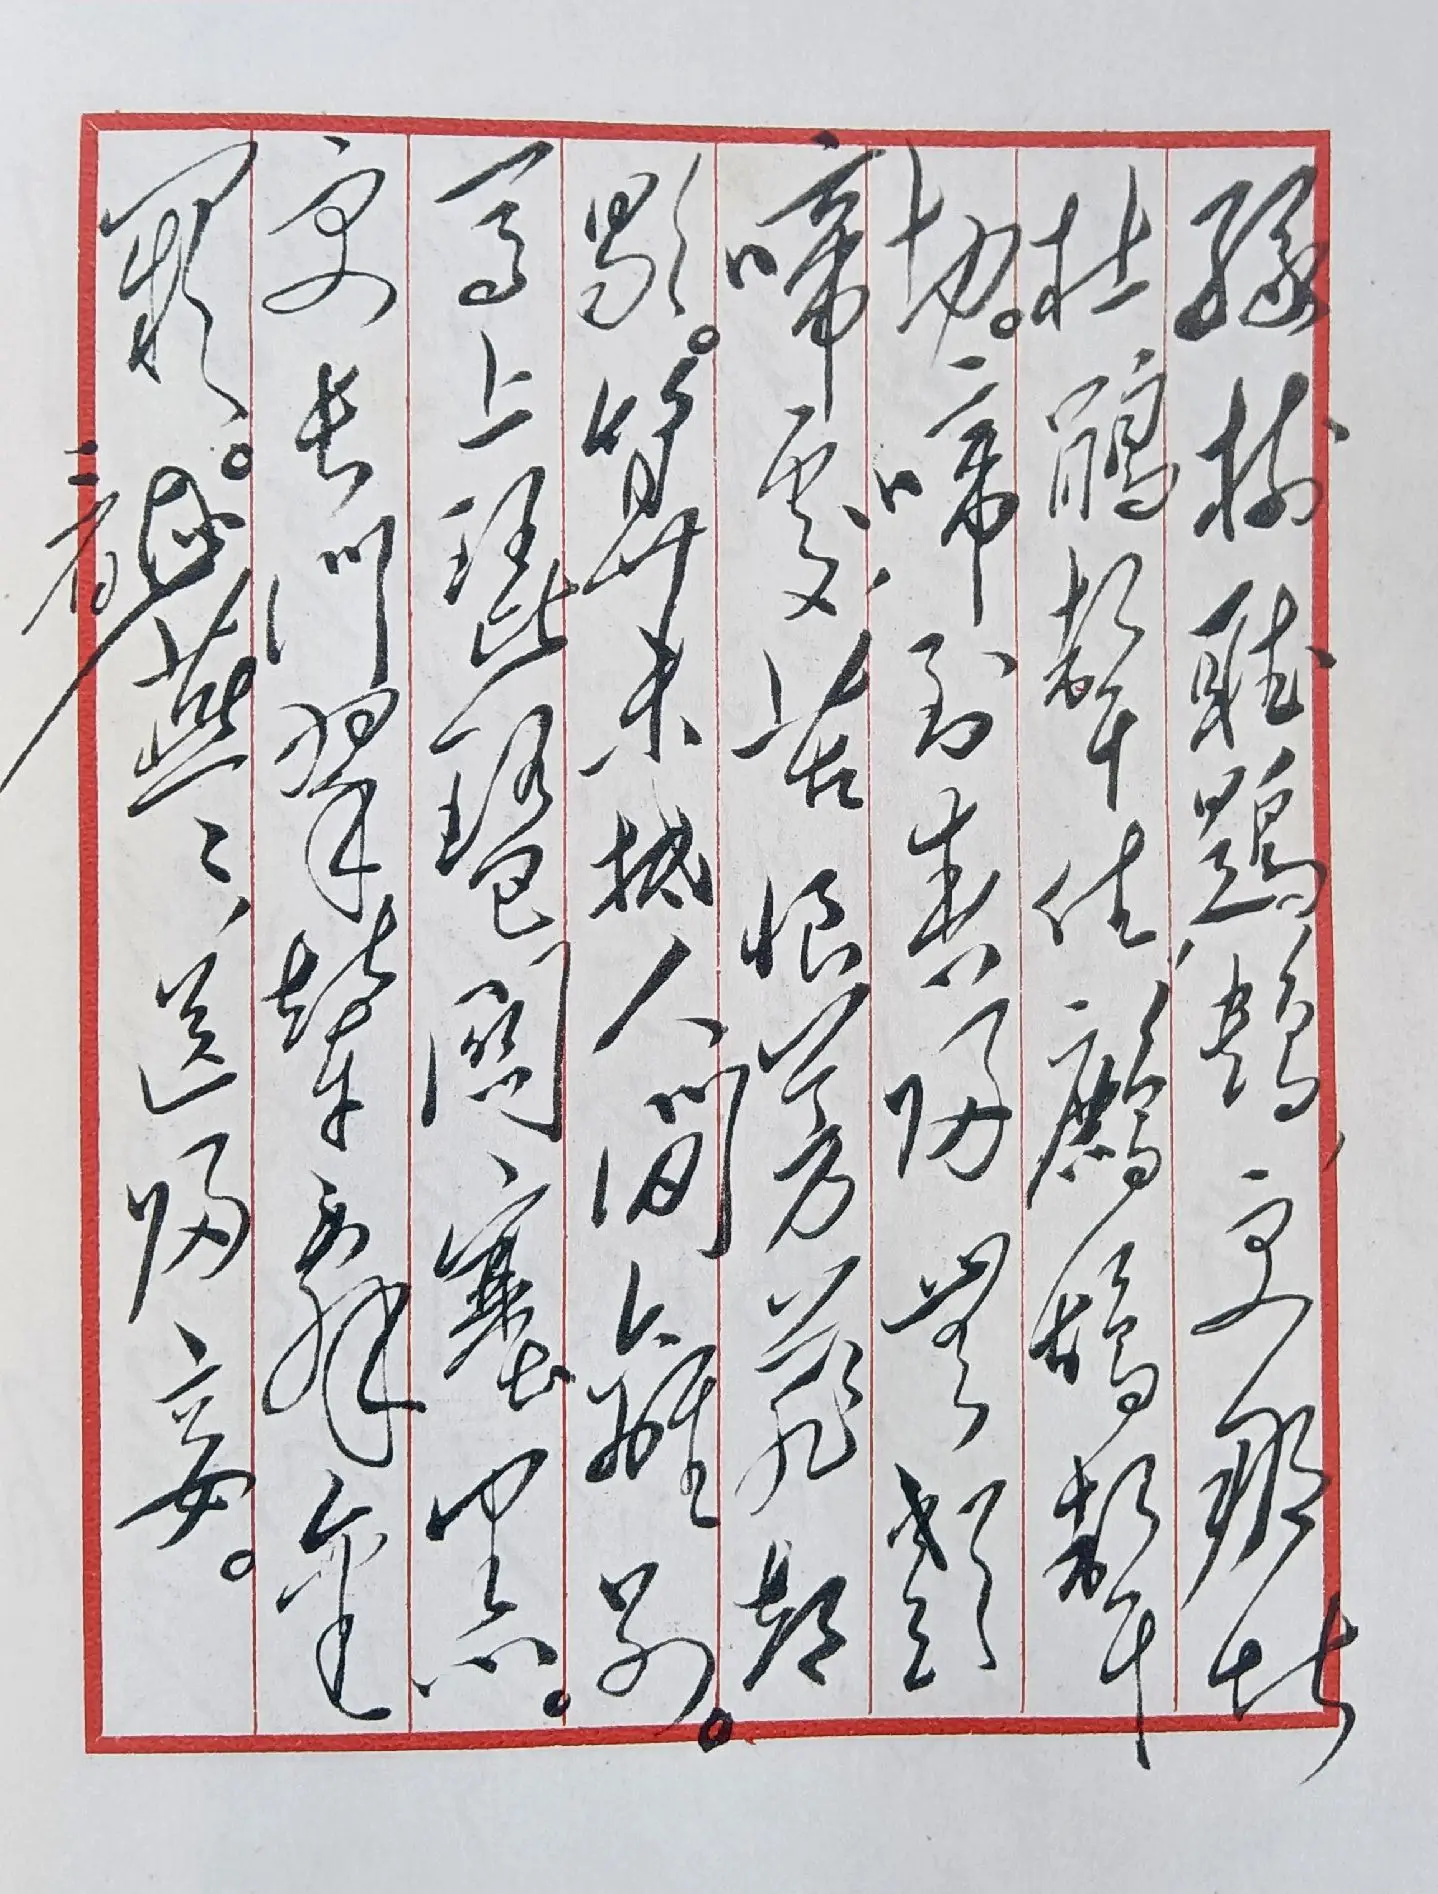 綠樹聽鶗鴂、更那堪
杜鵑聲住、鷓鴣聲
切。啼到春歸無
啼處、苦恨芳菲都
歇。算未抵人間離別。
馬上琵琶關塞黑。
更長門翠輦辭金
闕。看燕〻、送歸妾。